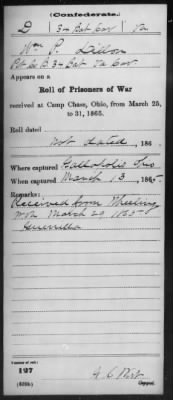 (Confederate.)
D 34 Bat Cav Va
Wm P. Dillon
Pvt Co. B. 34 Bat Va Cav
Appears on a
Roll of Prisoners of War
received at Camp Chase, Ohio, from March 25,
to 31, 1865.
Roll dated
Not dated, 186 .
Where captured Gallopolis Oio
When captured March 13, 1865.
Remarks:
Received from Wheeling
W. Va March 29 1865
Guerrilla
Number of roll:
127
Copyist.